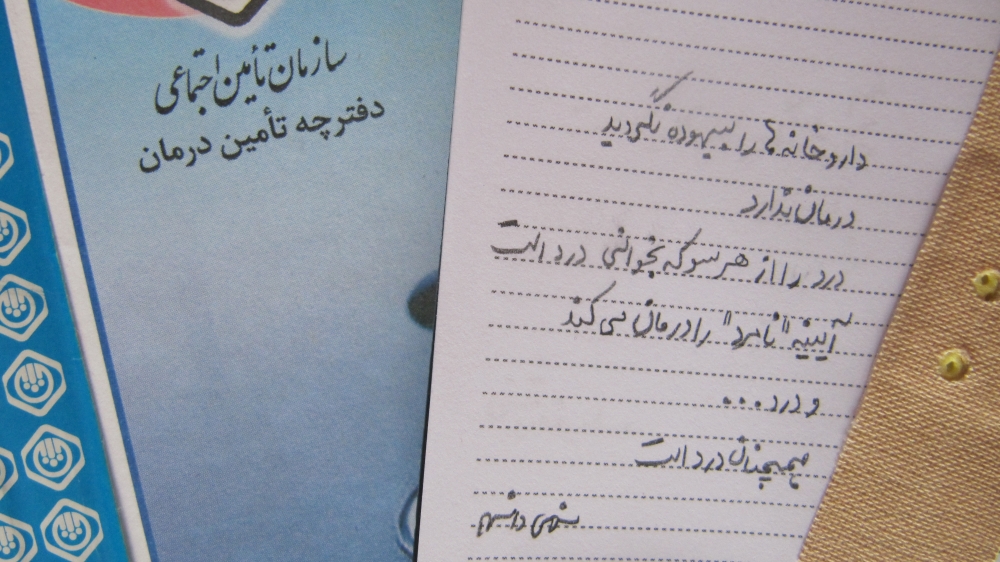 سازمان تأمین اجتماعی
دفترچه تأمین درمان
داروخانه ها را بیهوده نگردید
درمان ندارد
درد را از هر سو که بخوانی درد است
آیینه "نامرد" را درمان می کند
و درد...
همچنان درد است